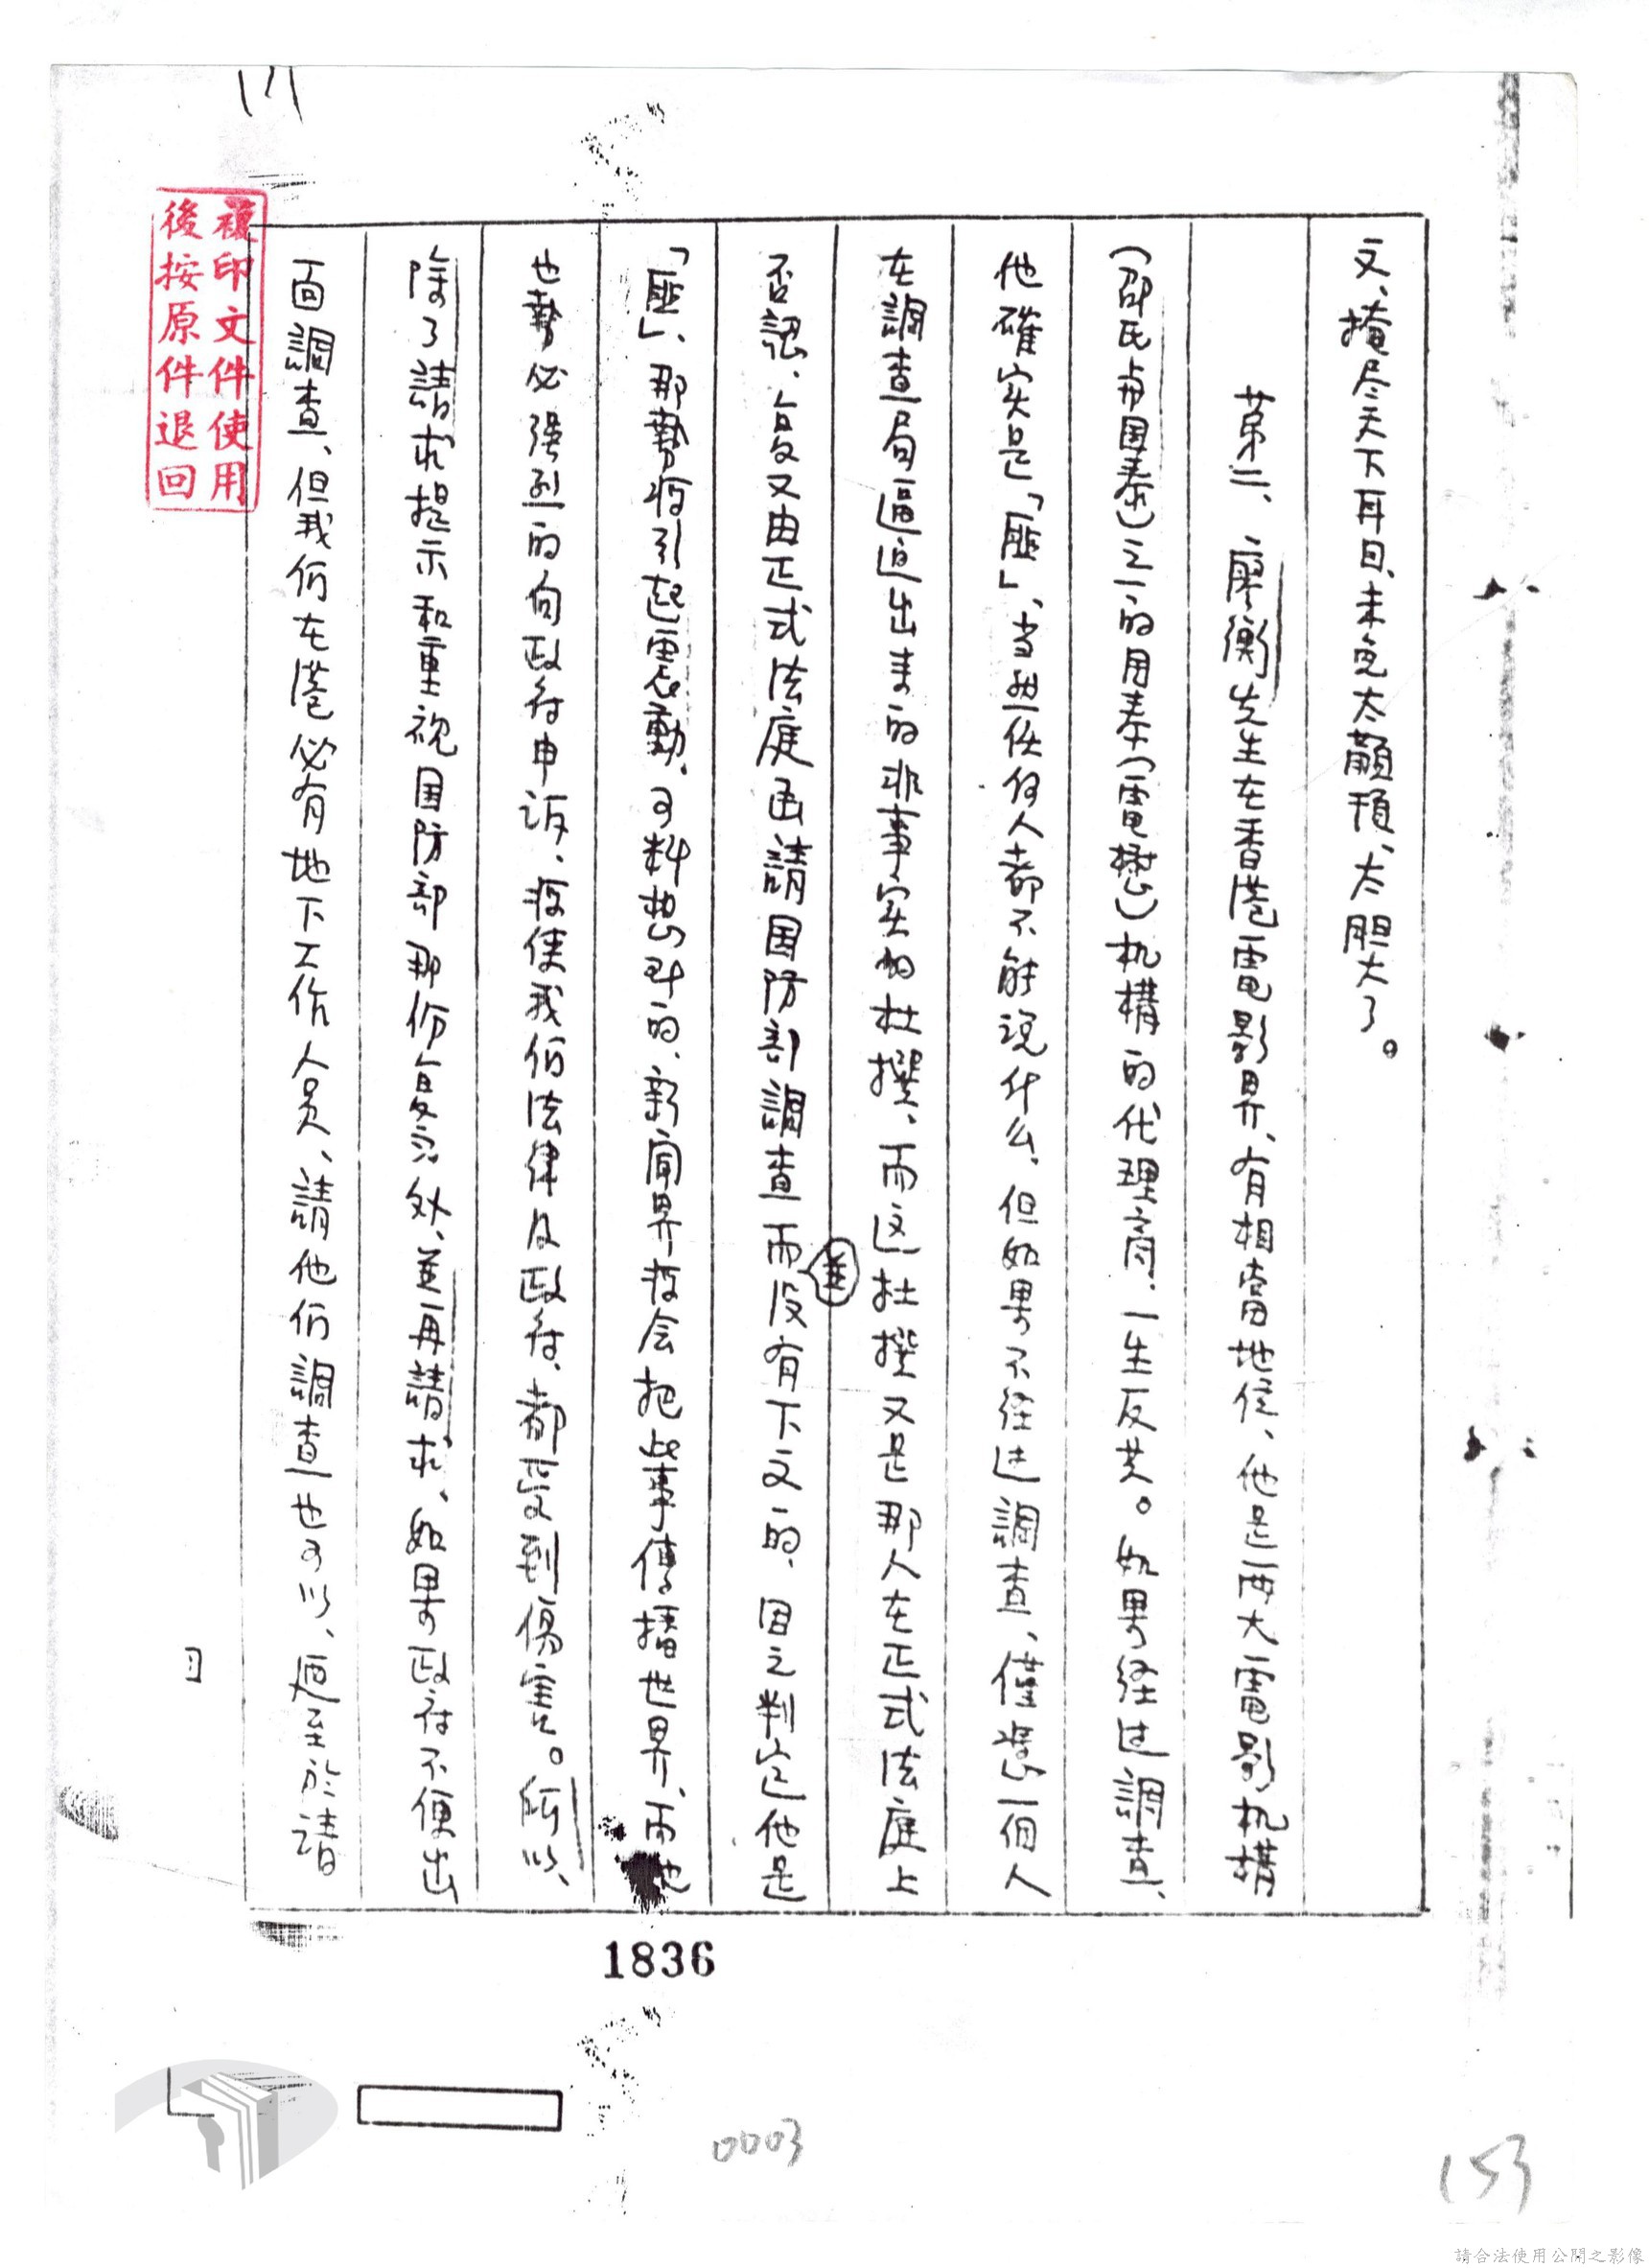 文、掩尽天下耳目、未免太顢頇、太胆大了。
第二、廖衡先生在香港電影界、有相當地位、他是两大電影机構
(邵氏与国泰)之一的国泰(電懋)机構的代理商、一生反共。如果経过調查、
他確实是「匪」、当然任何人都不能说什么、但如果不経过調查、僅凭一個人
在調查局逼迫出来的非事实的杜撰、而这杜撰又是那人在正式法庭上
否認、复又由正式法庭函請国防部調查而没有下文的、因之判定他是
「匪」、那勢将引起震動、可料想到的、新聞界将会把此事傳播世界、而他
也勢必强烈的向政府申诉、将使我们法律及政府、都受到傷害。所以、
除了請求提示和重視国防部那份复文外、並再請求、如果政府不便出
面調查、但我们在港必有地下工作人员、請他们調查也可以、廼至於請
複印文件使用
後按原件退回
1836
0003
153
請合法使用公開之影像